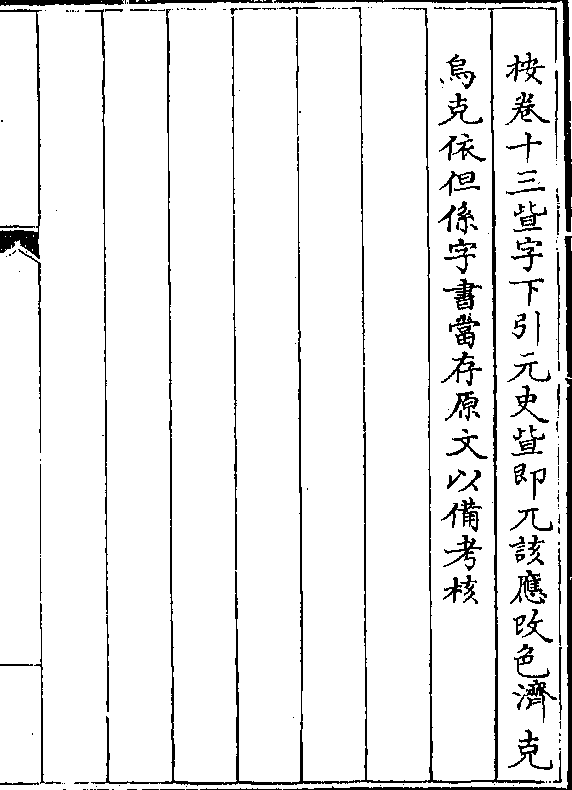 桉卷十三字下引元史即兀該應改色濟克
烏克依但係字書當存原文以備考核